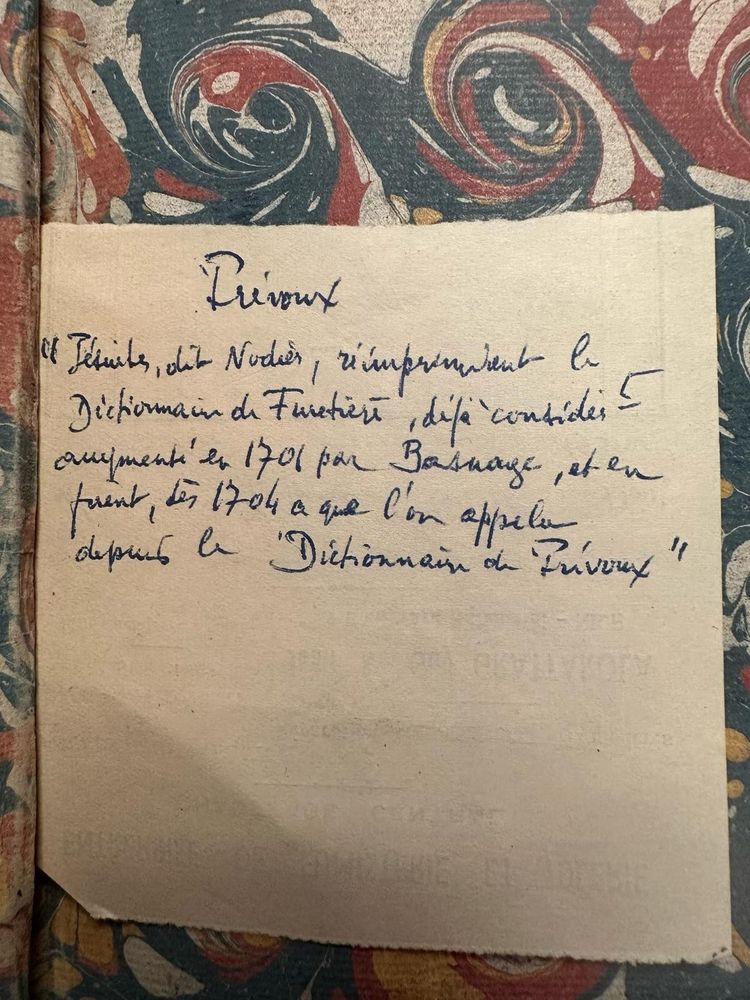 Trévoux
"Jésuites, dit Nodier, réimprimèrent le
Dictionnaire de Furetière, déjà considér-
augmenté en 1701 par Basnage, et en
firent, dès 1704 ce que l'on appela
depuis le "Dictionnaire de Trévoux"
GRATTAROLA
CENTRAL
FUMISTERIE ET TOLERIE